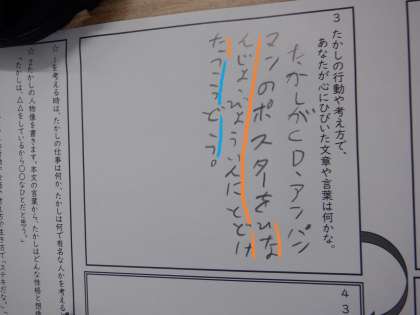 3 たかしの行動や考え方で、
あなたが心にひびいた文章や言葉は何かな。
たかしがCD、アンパン
マンのポスターをひな
んじょ、びょういんにとどけ
たこうどう。
4
3
☆1を考える時は、たかしの仕事は何か、たかしは何で有名な人かを考える
☆2たかしの人物像を書きます。本文の言葉から、たかしはどんな性格と想像
「たかしは、△△をしているから○○なひとだと思う。」